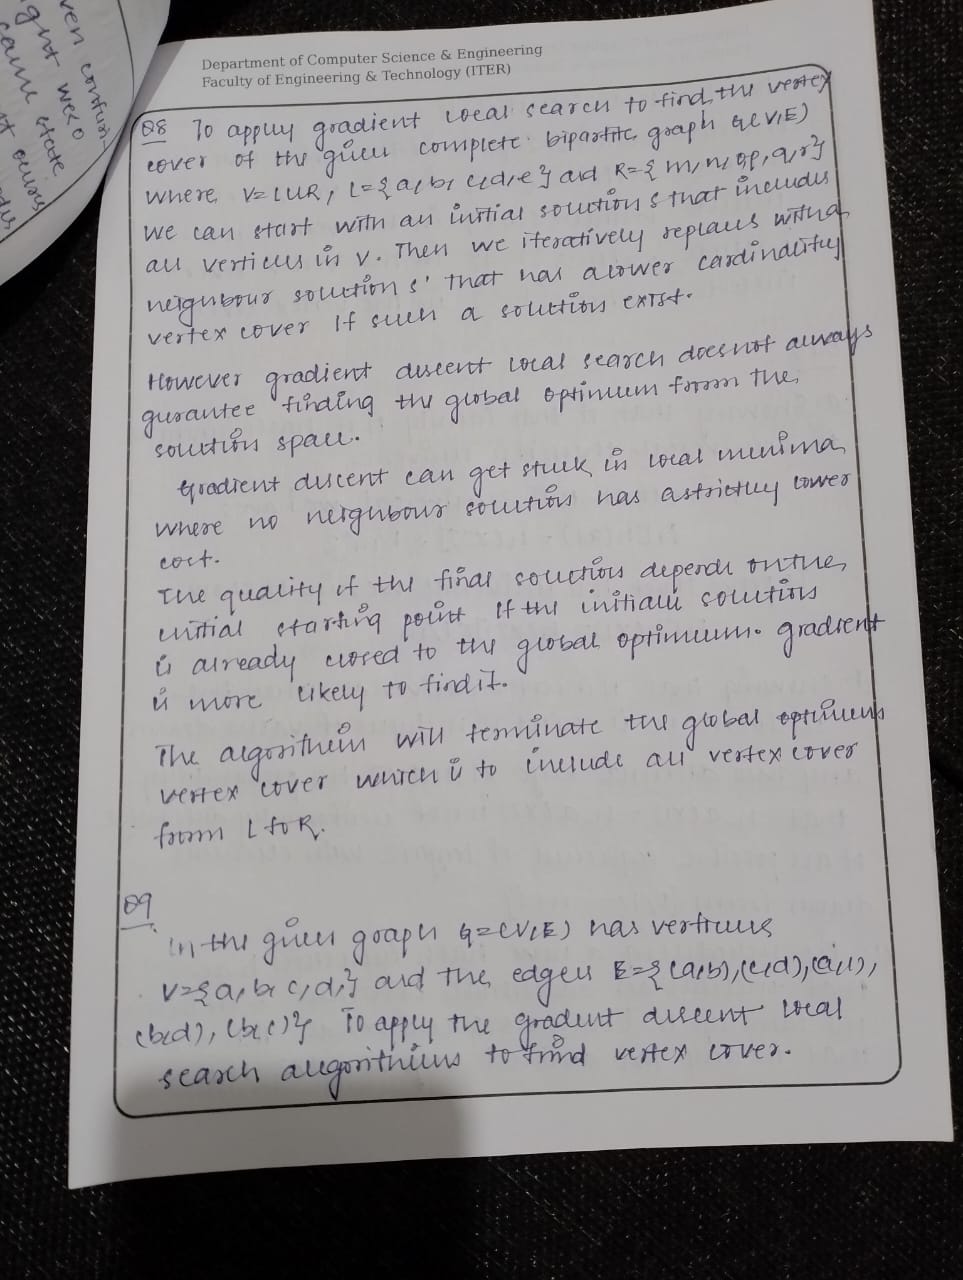 ven confin
ght we20
came state
t occurs
Department of Computer Science & Engineering
Faculty of Engineering & Technology (ITER)
Q8 To apply gradient local search to find the vertex
cover of the given complete bipartite graph G(V,E)
where V=LUR, L={a,b,c,d,e} and R={m,n,o,p,q,r}
we can start with an initial solution s that includes
all vertices in V. Then we iteratively replaces with a
neighbour solution s' that has a lower cardinality
vertex cover If such a solution exist.
However gradient discent local search does not always
gurantee finding the global optimum from the
solution space.
Gradient discent can get stuck in local minima
where no neighbour solution has a strictly lower
cost.
The quality if the final solution depends on the
initial starting point If the initial solution
is already closed to the global optimum. gradient
is more likely to find it.
The algorithm will terminate the global optimum
vertex cover which is to include all vertex cover
from L for R.
Q9
In the given graph G=(V,E) has vertices
V={a,b,c,d,} and the edges E={(a,b),(c,d),
(b,d),(b,c)} To apply the gradient discent local
search algorithms to find vertex cover.